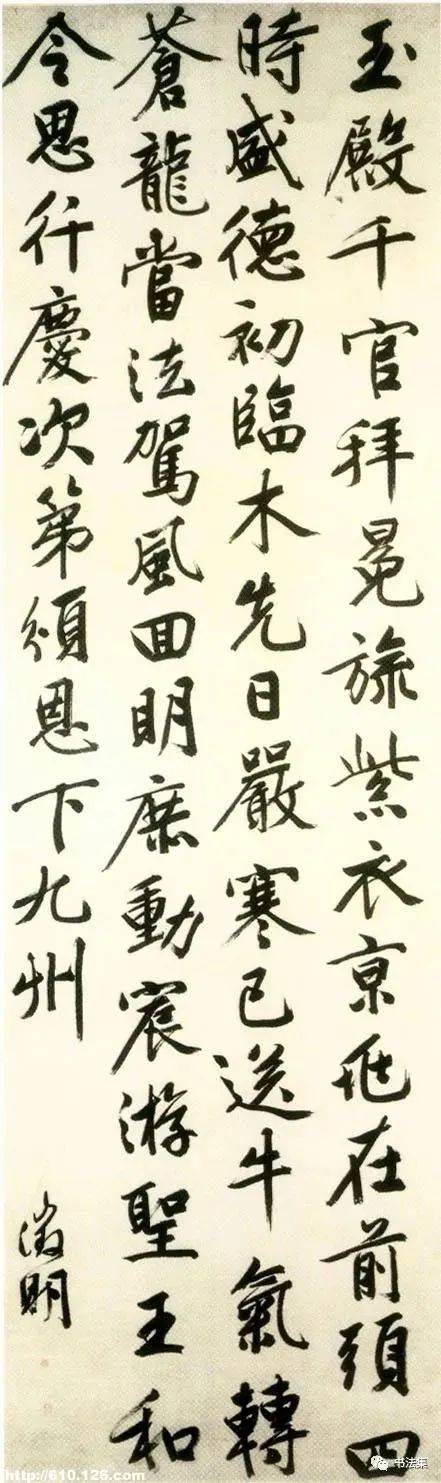 玉殿千官拜冕旒紫衣京兆在前頭四
時盛德初臨木先日嚴寒已送牛氣轉
蒼龍當法駕風回明庶動宸游聖王和
令思行慶次第頒恩下九州
徵明
http://610.126.com/
书法集